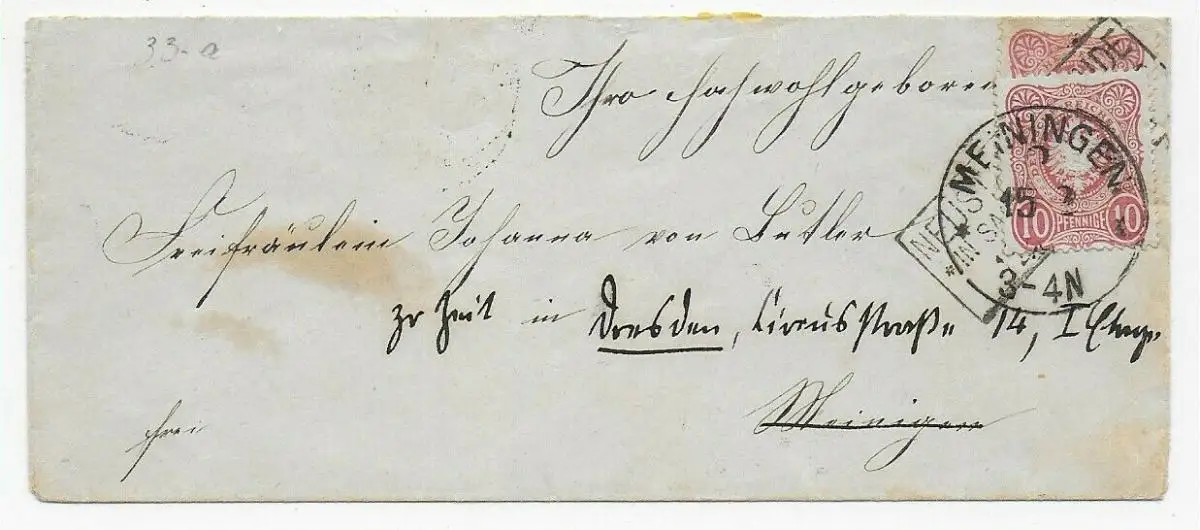 33-a
Ihro hochwohlgeboren
Freifräulein Johanna von Butler
zr Zeit in Dresden, Circusstraße 14, I Etage.
Meiningen
frei
MEININGEN
15 2
3-4N
NEUS
IN SA
REICHS
10 PFENNIGE 10